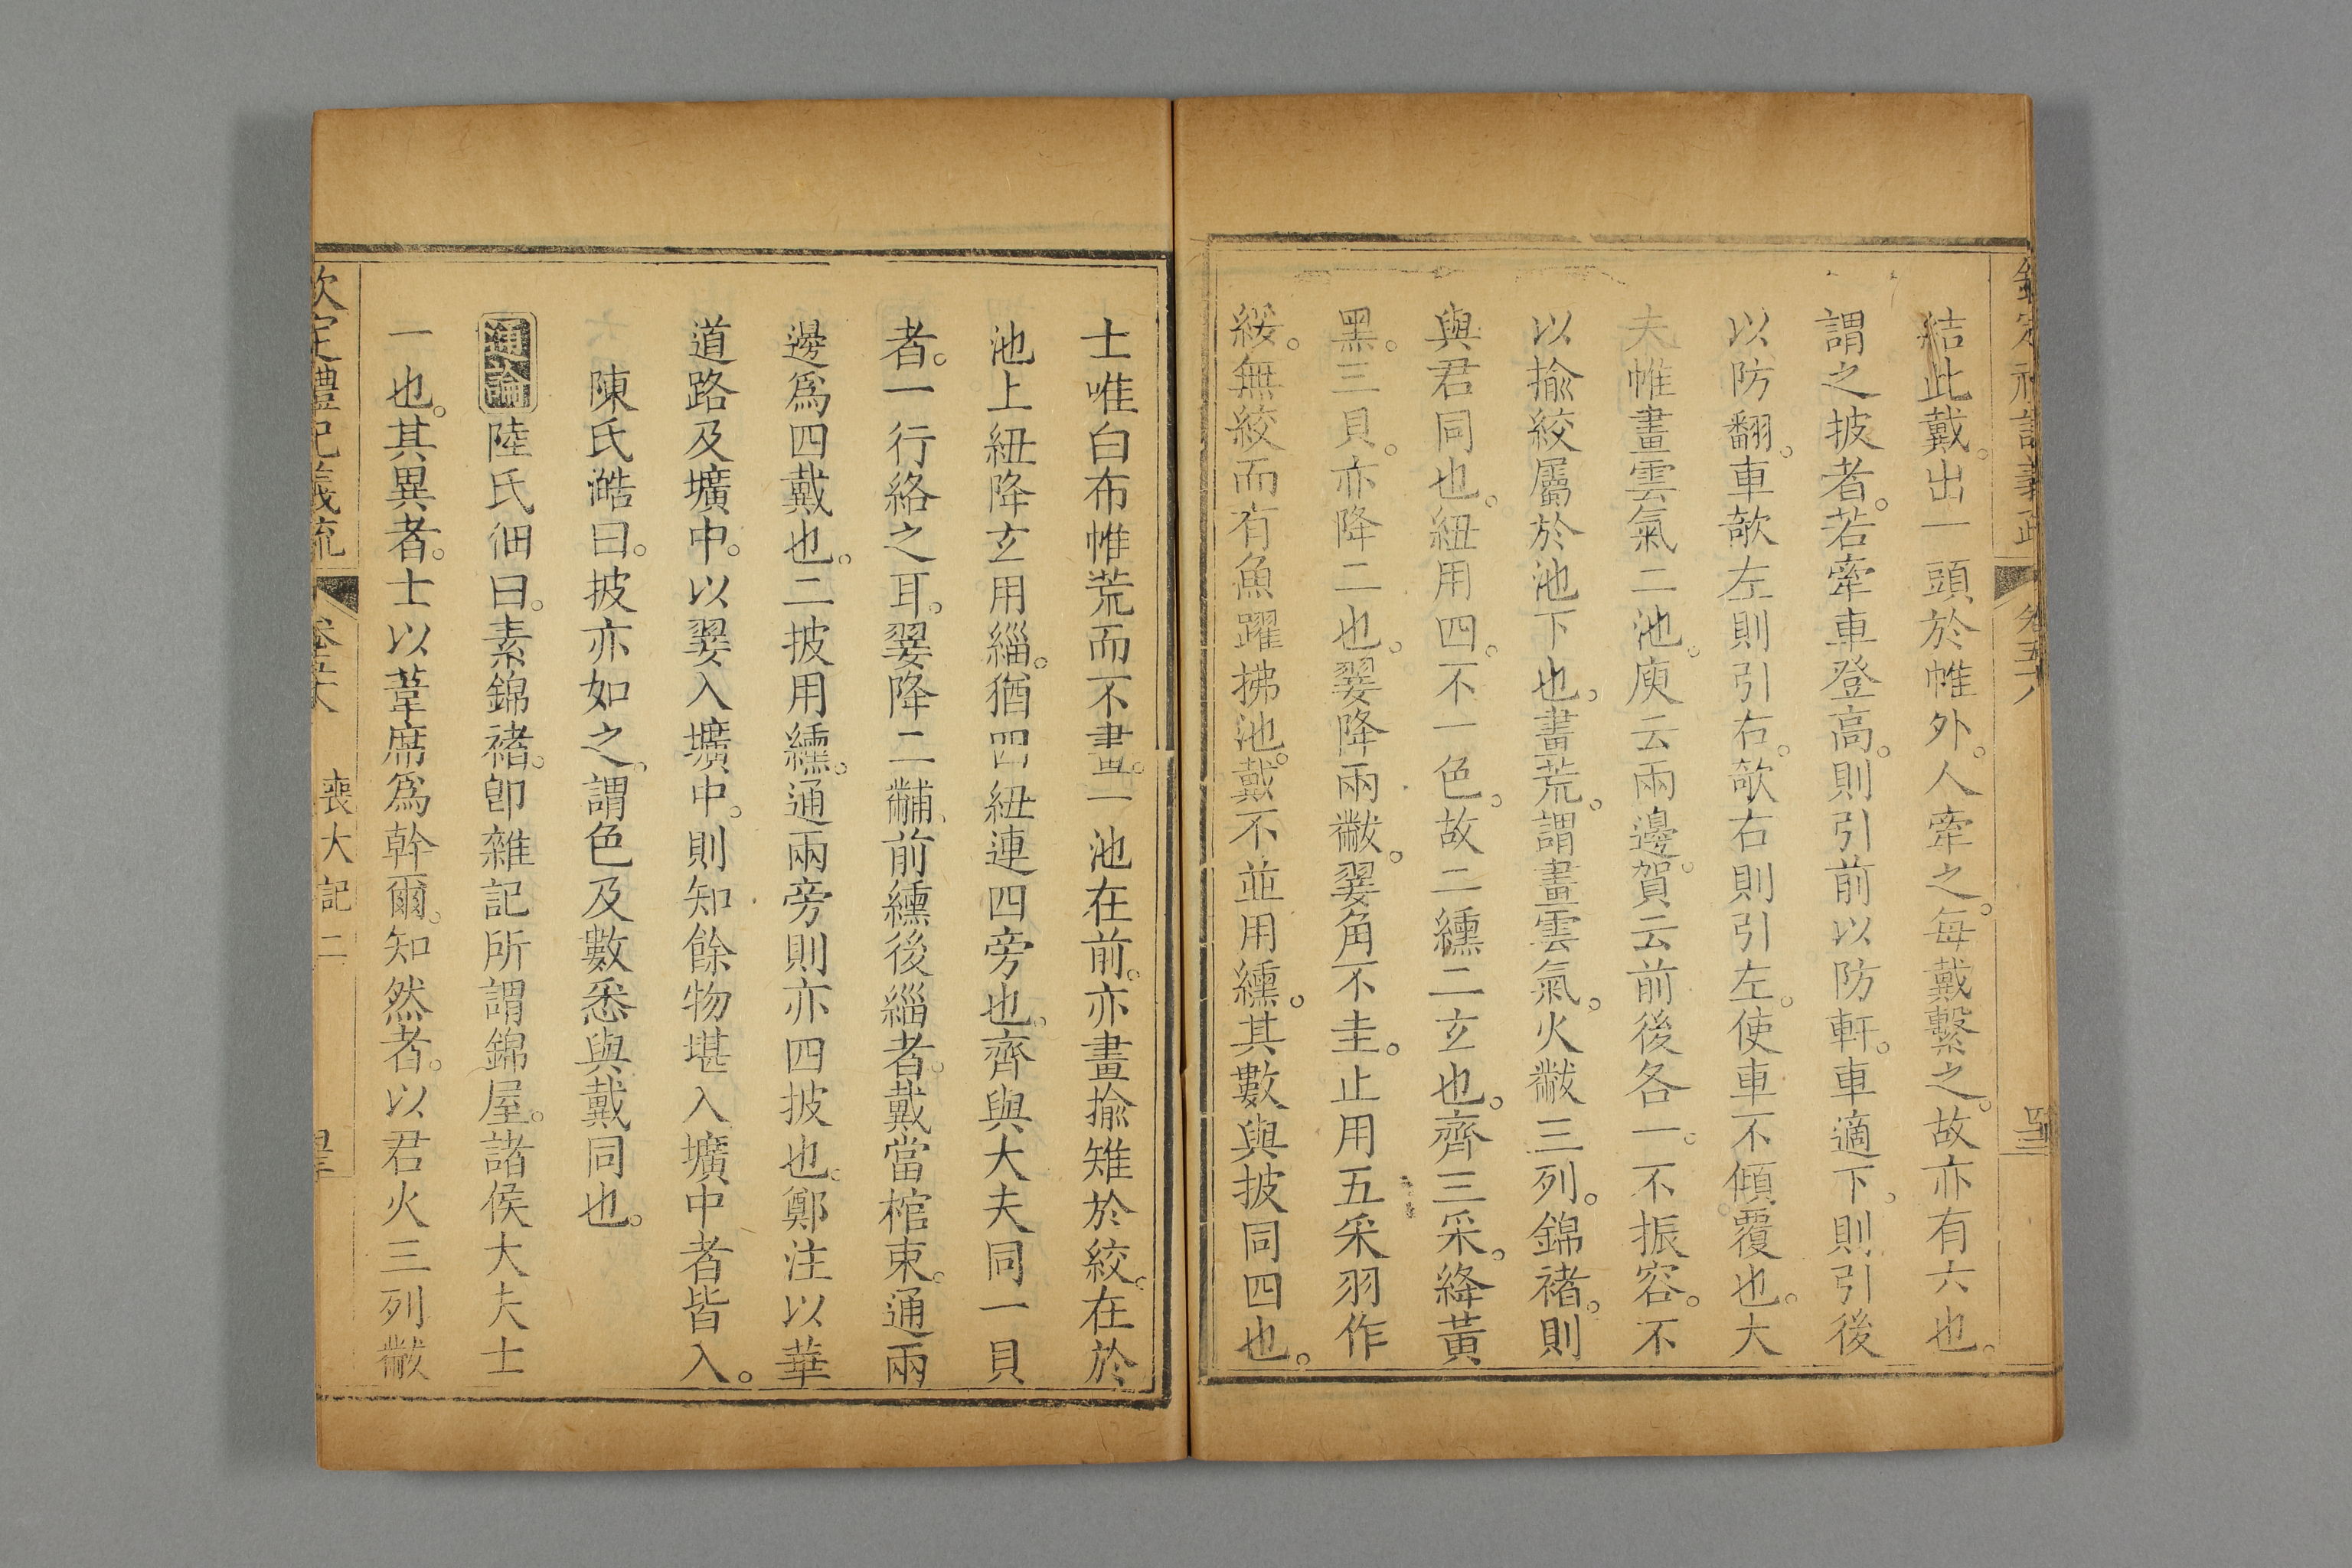 結此戴。出一頭於帷外。人牽之。每戴繫之。故亦有六也。
謂之披者。若牽車登高。則引前以防軒。車適下。則引後
以防翻。車欹左則引右。欹右則引左。使車不傾覆也。大
夫帷畫雲氣二池。庾云兩邊。賀云前後各一。不振容。不
以揄絞屬於池下也。畫荒。謂畫雲氣。火黻三列。錦褚。則
與君同也。紐用四。不一色。故二纁二玄也。齊三采。絳黃
黑。三貝。亦降二也。翣降兩黻。翣角不圭。止用五采羽作
緌。無絞而有魚躍拂池。戴不並用纁。其數與披同四也。
士唯白布帷荒而不畫。一池在前。亦畫揄雉於絞。在於
池上紐降玄用緇。猶四紐連四旁也。齊與大夫同一貝
者。一行絡之耳。翣降二黼。前纁後緇者。戴當棺束。通兩
邊爲四戴也。二披用纁。通兩旁則亦四披也。鄭注以華
道路及壙中。以翣入壙中。則知餘物堪入壙中者皆入。
陳氏澔曰。披亦如之。謂色及數悉與戴同也。
通論 陸氏佃曰。素錦褚。卽雜記所謂錦屋。諸侯大夫士
一也。其異者。士以葦席爲幹爾。知然者。以君火三列黻
欽定禮記義疏 卷五十六 喪大記二